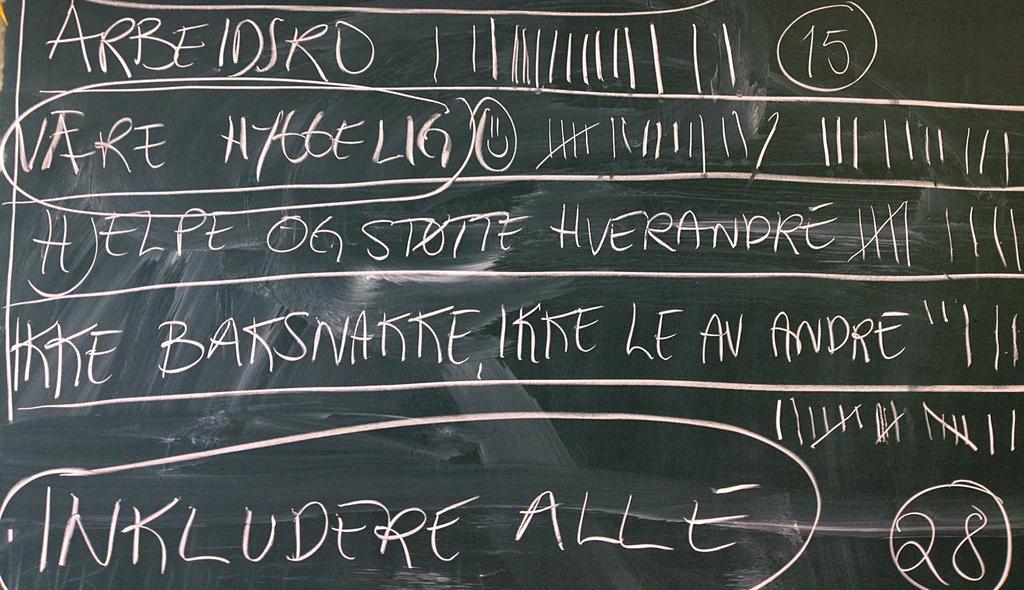 ARBEIDSRO 15
VÆRE HYGGELIG
HJELPE OG STØTTE HVERANDRE
IKKE BAKSNAKKE, IKKE LE AV ANDRE
INKLUDERE ALLE 28